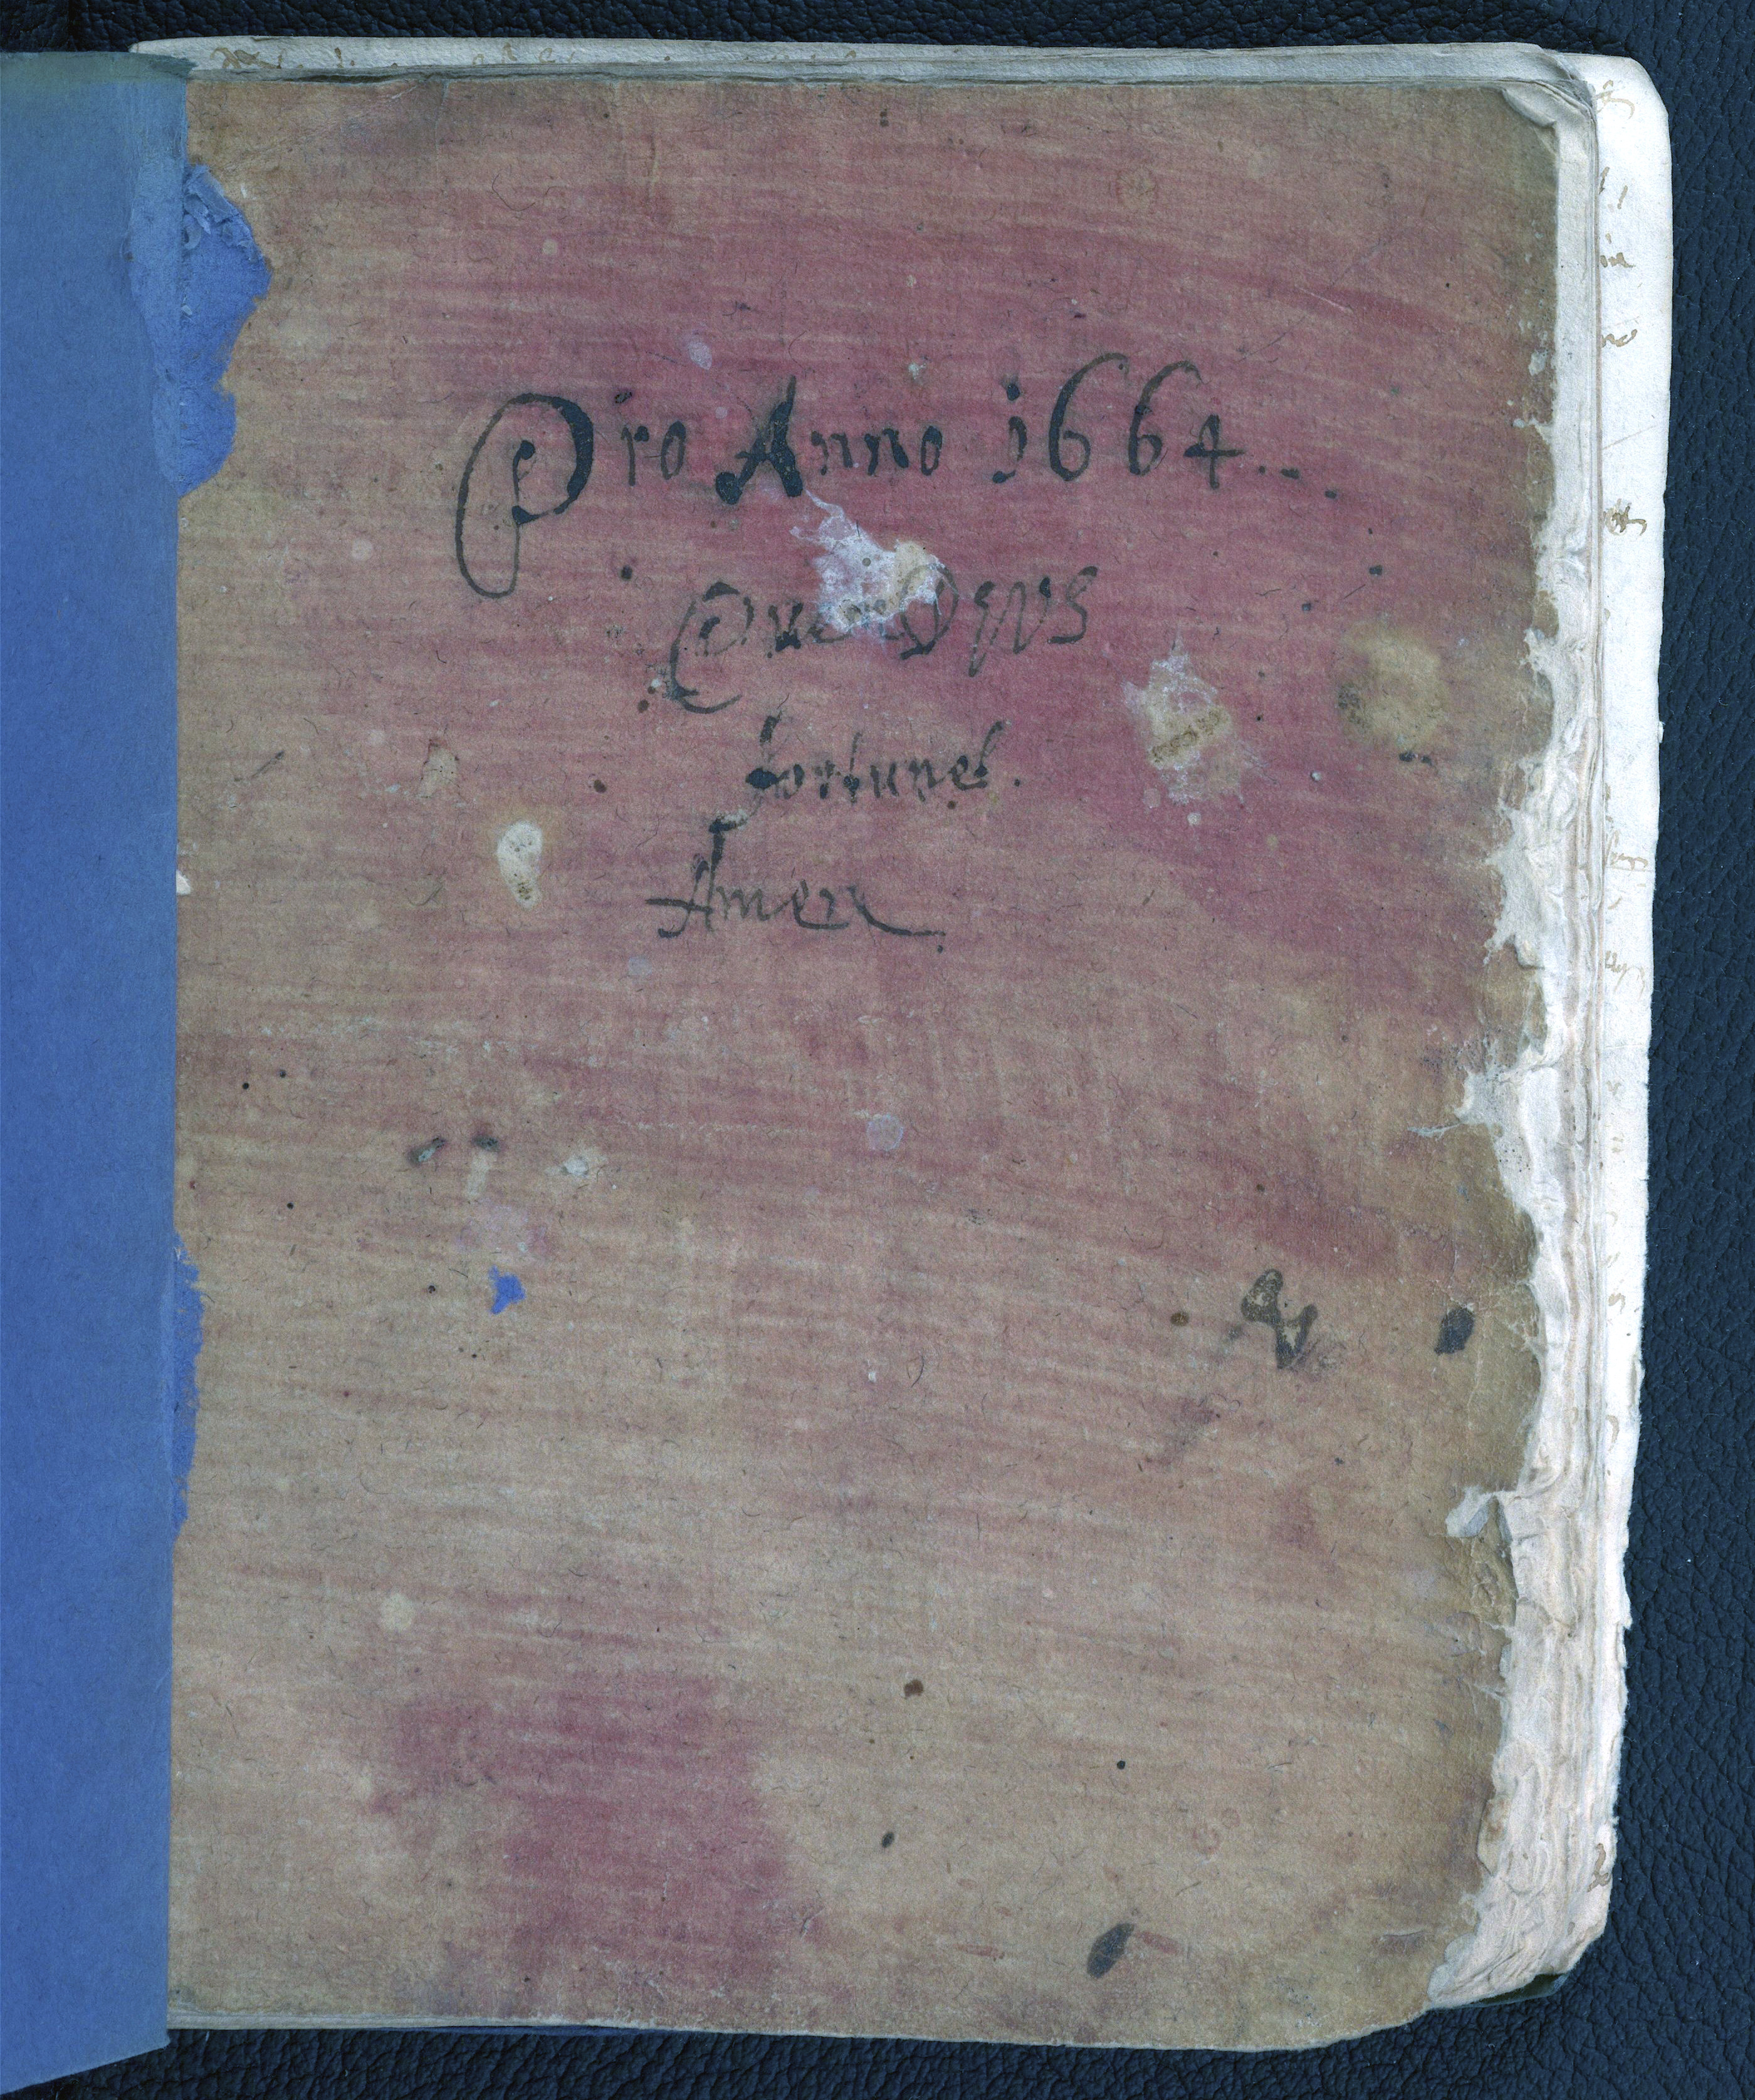 Pro Anno 1664...
Quem
fortunet.
Amen